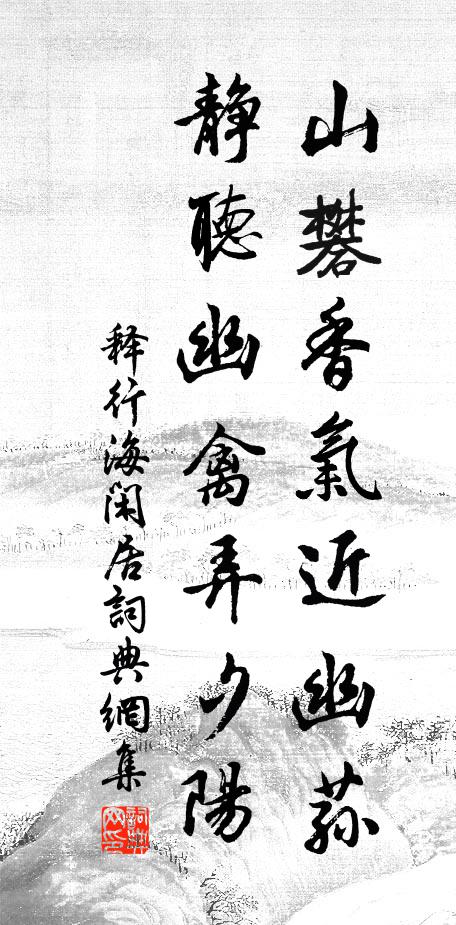 山礬香氣近幽蓀
靜聽幽禽弄夕陽
释行海閑居詞典網集
詞典网印